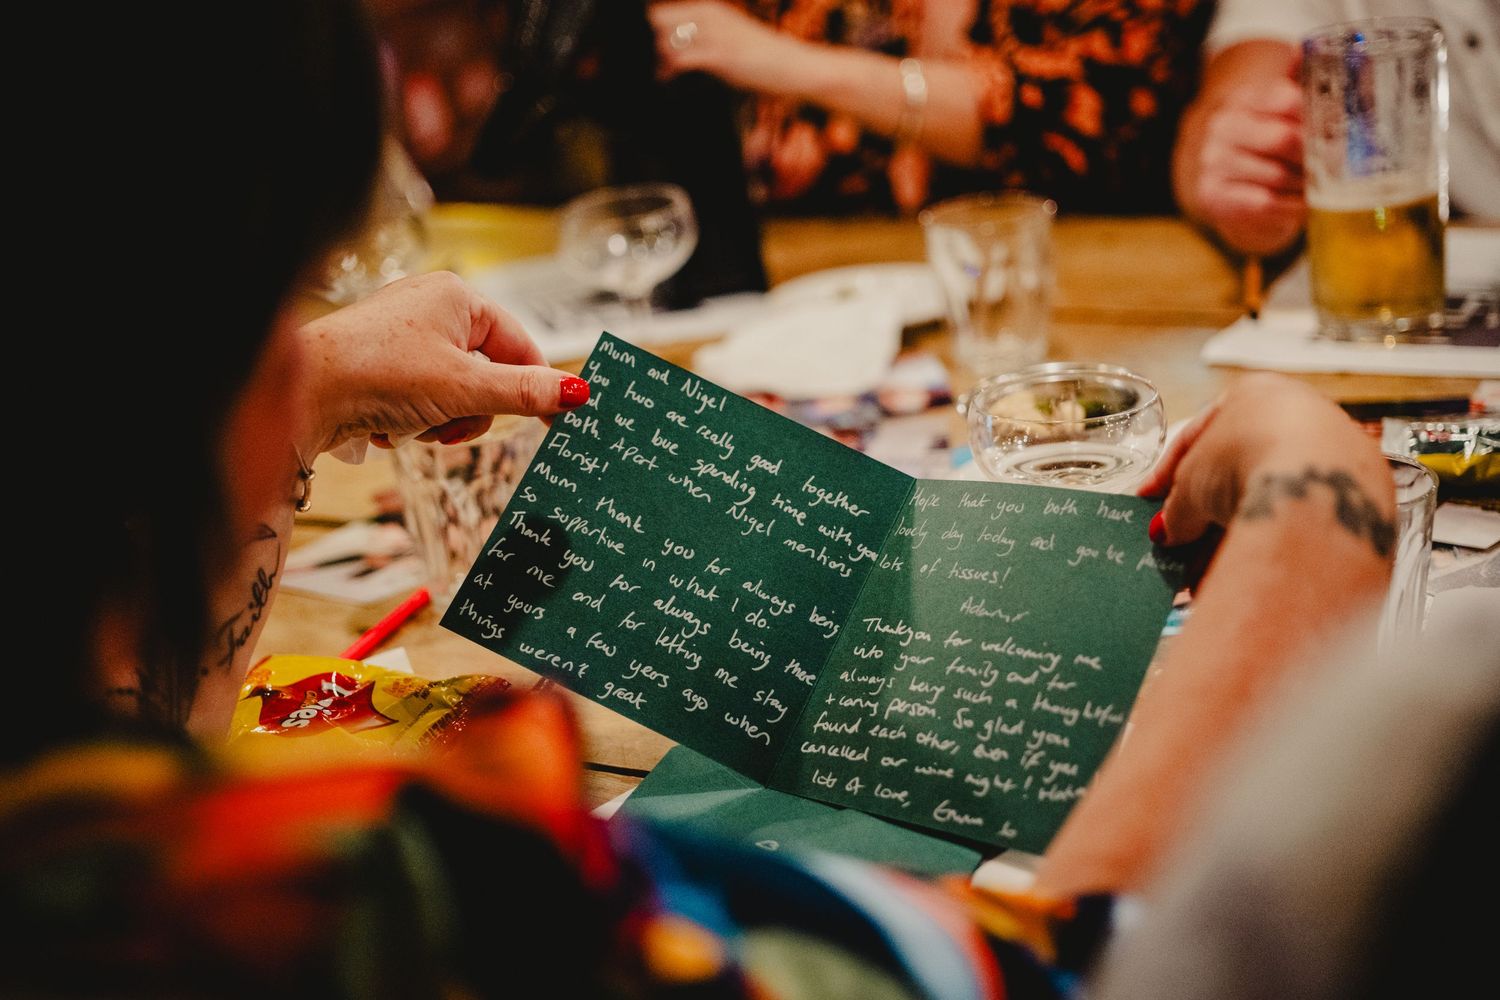 Mum and Nigel
You two are really good together
we love spending time with you
both. Apart when Nigel mentions
Florist!
Mum, thank you for always being
so supportive in what I do.
Thank you for always being there
for me and for letting me stay
at yours a few years ago when
things weren't great
Hope that you both have
lovely day today and you've
lots of tissues!
Adam x
Thankyou for welcoming me
into your family and for
always being such a thoughtful
+ caring person. So glad you
found each other, even if you
cancelled our wine night!
Lots of love, Emma xo
Faith